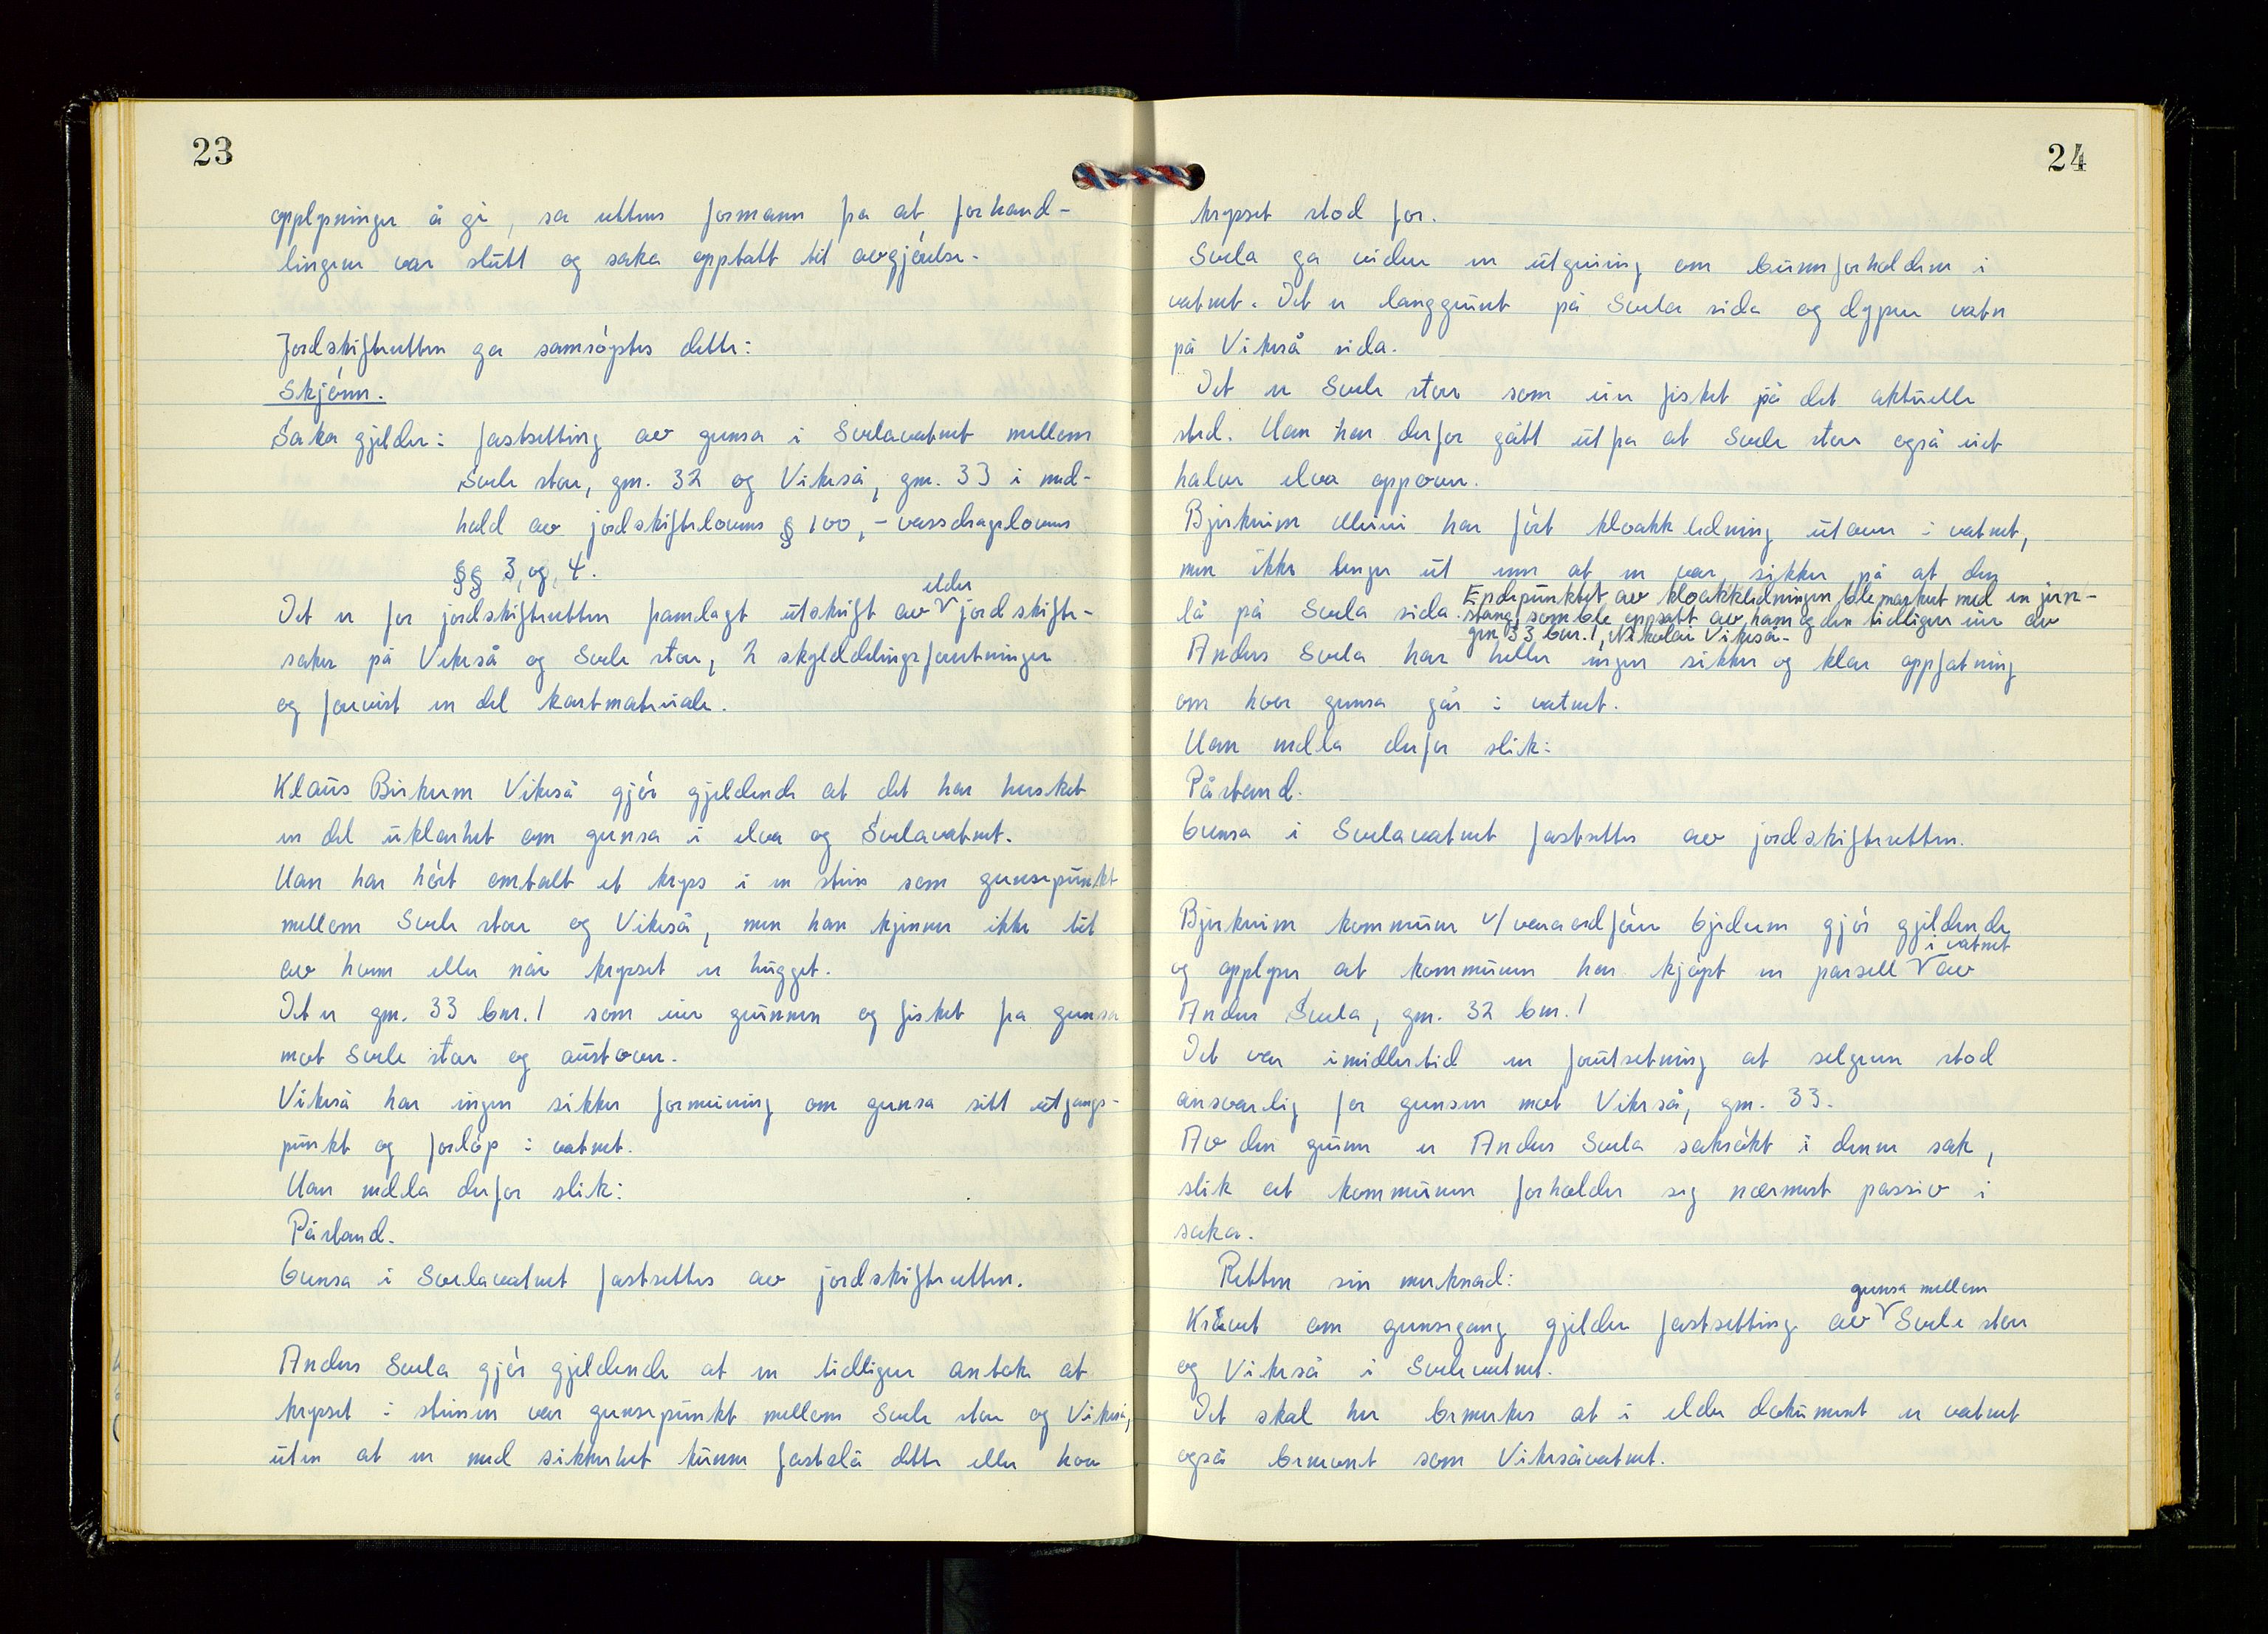 23
opplysninger å gi, sa rettens formann fra at forhand-
lingene var slutt og saka opptatt til avgjörelse.
Jordskifteretten ga samröystes dette:
Skjönn.
Saka gjelder: fastsetting av grensa i Svelavatnet mellom
Svele store, gnr. 32 og Vikeså, gnr. 33 i med-
hold av jordskiftelovens § 100, - vassdragslovens
§§ 3, og, 4.
eldre
Det er for jordskifteretten framlagt utskrift av jordskifte-
saker på Vikeså og Svele store, 2 skylddelingsforretninger
og forevist en del kartmateriale.
Klaus Birkrem Vikeså gjör gjeldende at det har hersket
en del uklarhet om grensa i elva og Svelavatnet.
Han har hört omtalt et kryss i en stein som grensepunkt
mellom Svele store og Vikeså, men han kjenner ikke til
av hvem eller når krysset er hugget.
Det er gnr. 33 bnr. 1 som eier grunnen og fisket fra grensa
mot Svele store og austover.
Vikeså har ingen sikker formening om grensa sitt utgangs-
punkt og forlöp i vatnet.
Han nedla derfor slik:
Påstand.
Grensa i Svelavatnet fastsettes av jordskifteretten.
Anders Svela gjör gjeldende at en tidligere antok at
krysset i steinen var grensepunkt mellom Svele store og Vikeså,
uten at en med sikkerhet kunne fastslå dette eller hva
24
krysset stod for.
Svela ga videre en utgreiing om bunnforholdene i
vatnet. Det er langgrunt på Svela sida og dypere vatn
på Vikeså sida.
Det er Svele store som eier fisket på det aktuelle
sted. Han har derfor gått ut fra at Svele store også eiet
halve elva oppover.
Bjerkreim Meieri har fört kloakkledning utover i vatnet,
men ikke lenger ut enn at en var sikker på at den
lå på Svela sida. Endepunktet av kloakkledningen ble merket med en jern-
stang, som ble oppsatt av ham og den tidligere eier av
gnr. 33 bnr. 1, Nikolai Vikeså.
Anders Svela har heller ingen sikker og klar oppfatning
om hvor grensa går i vatnet.
Han nedla derfor slik:
Påstand.
Grensa i Svelavatnet fastsettes av jordskifteretten.
Bjerkreim kommune v/varaordförer Gjedrem gjör gjeldende
i vatnet
og opplyser at kommunen har kjöpt en parsell av
Anders Svela, gnr. 32 bnr. 1
Det var imidlertid en forutsetning at selgeren stod
ansvarlig for grensen mot Vikeså, gnr. 33.
Av den grunn er Anders Svela saksökt i denne sak,
slik at kommunen forholder seg nærmest passiv i
saka.
Retten sin merknad:
grensa mellom
Kravet om grensegang gjelder fastsetting av Svele store
og Vikeså i Svelevatnet.
Det skal her bemerkes at i eldre dokument er vatnet
også benevnt som Vikesåvatnet.